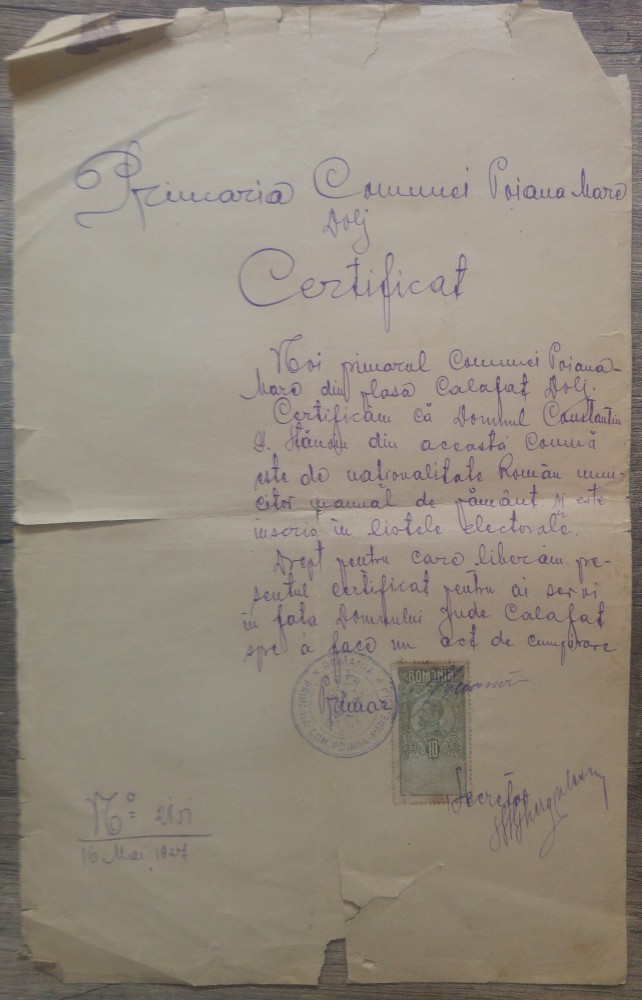 Primaria Comunei Poiana Mare
Dolj
Certificat
Noi primarul Comunei Poiana-
Mare din plasa Calafat Dolj.
Certificăm că Domnul Constantin
Stănciu din această Comună
este de naționalitate Român mun-
citor manual de pământ și este
inscris în listele electorale.
Drept pentru care liberăm pre-
sentul certificat pentru ai servi
în fața Domnului Jude Calafat
spre a face un act de cumpărare
Primar
ROMANIA
10
PRIMĂRIA COM. POIANA-MARE
ROMANIA
Secretar
No
16 Mai 1927